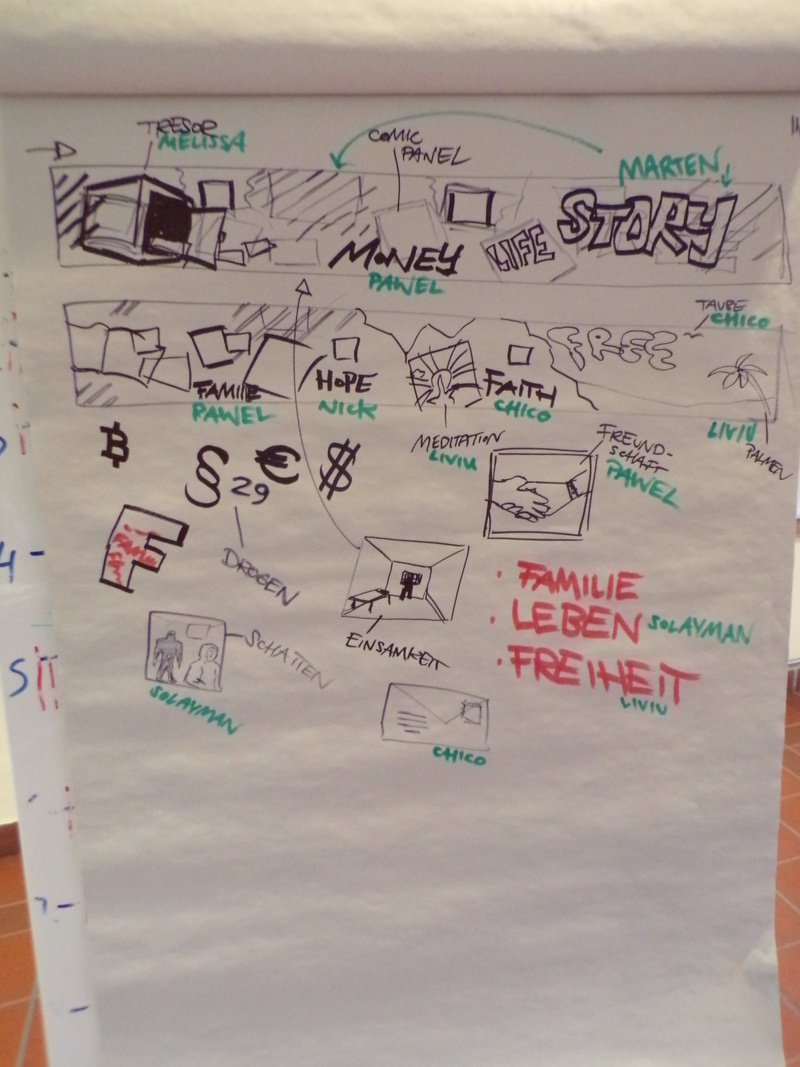 TRESOR
MELISSA
COMIC
PANEL
MARTEN
MONEY
PAWEL
LIFE
STORY
TAUBE
CHICO
FREE
FAMILIE
PAWEL
HOPE
NICK
FAITH
CHICO
MEDITATION
LIVIU
FREUND-
SCHAFT
PAWEL
LIVIU
PALMEN
₿
§ 29
€
$
F
DROGEN
SCHATTEN
SOLAYMAN
EINSAMKEIT
CHICO
· FAMILIE
· LEBEN SOLAYMAN
· FREIHEIT
LIVIU